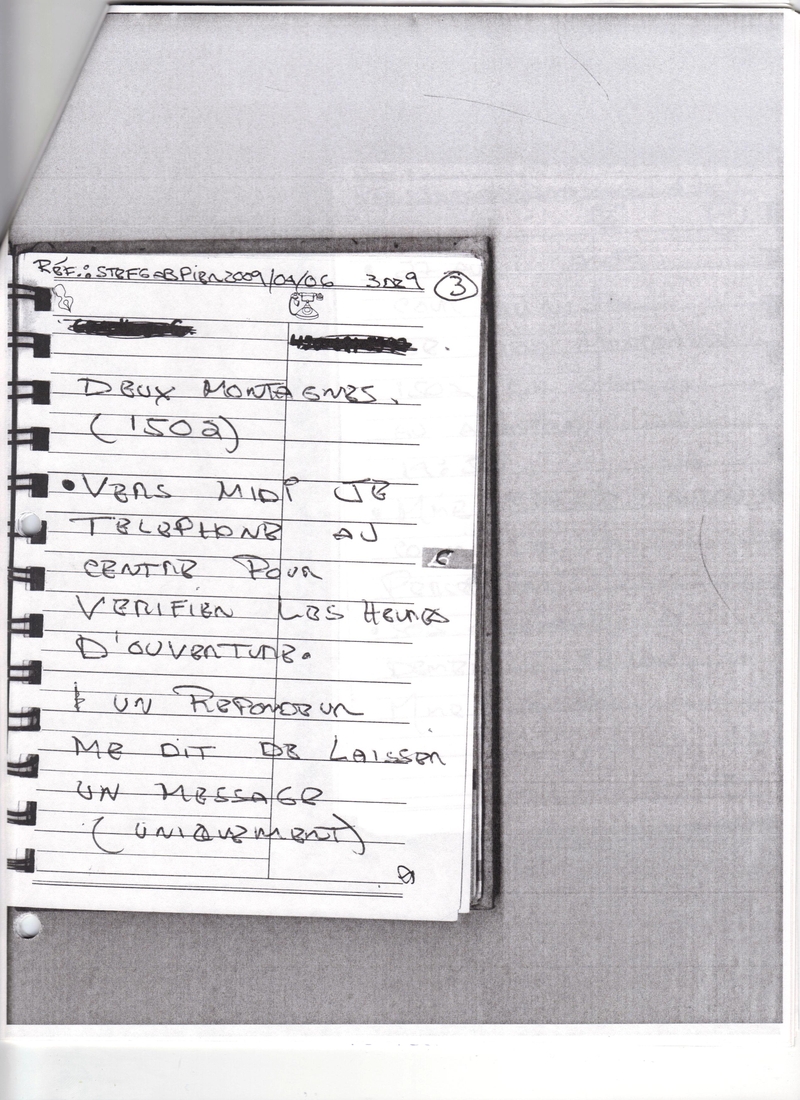 RÉF.: 2009/04/06 3 DE 9 3
DEUX MONTAGNES.
(1502)
• VERS MIDI JE
TELEPHONE AU
CENTRE POUR
VERIFIER LES HEURES
D'OUVERTURE.
UN REPONDEUR
ME DIT DE LAISSER
UN MESSAGE
(UNIQUEMENT)